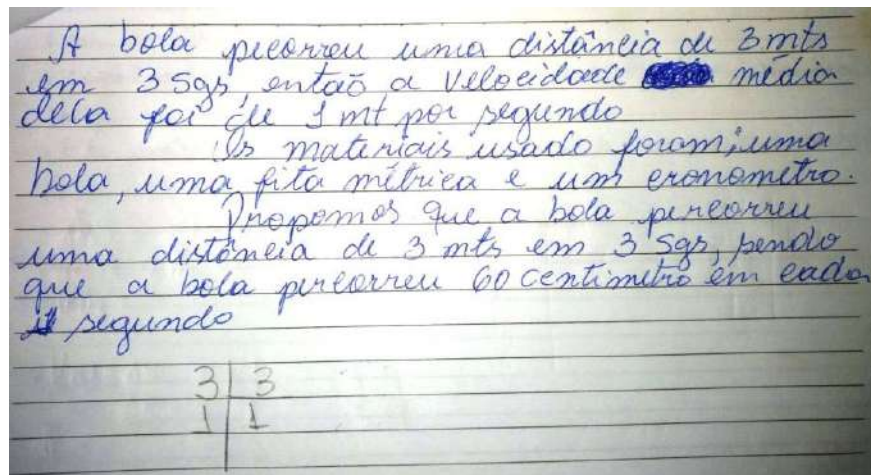 A bola pecorreu uma distância de 3 mts
em 3 sgs, então a velocidade média
dela foi de 1 mt por segundo
Os materiais usado foram; uma
bola, uma fita métrica e um cronometro.
Propomos que a bola percorreu
uma distância de 3 mts em 3 sgs, sendo
que a bola percorreu 60 centimetro em cada
segundo
3 | 3
1 | 1